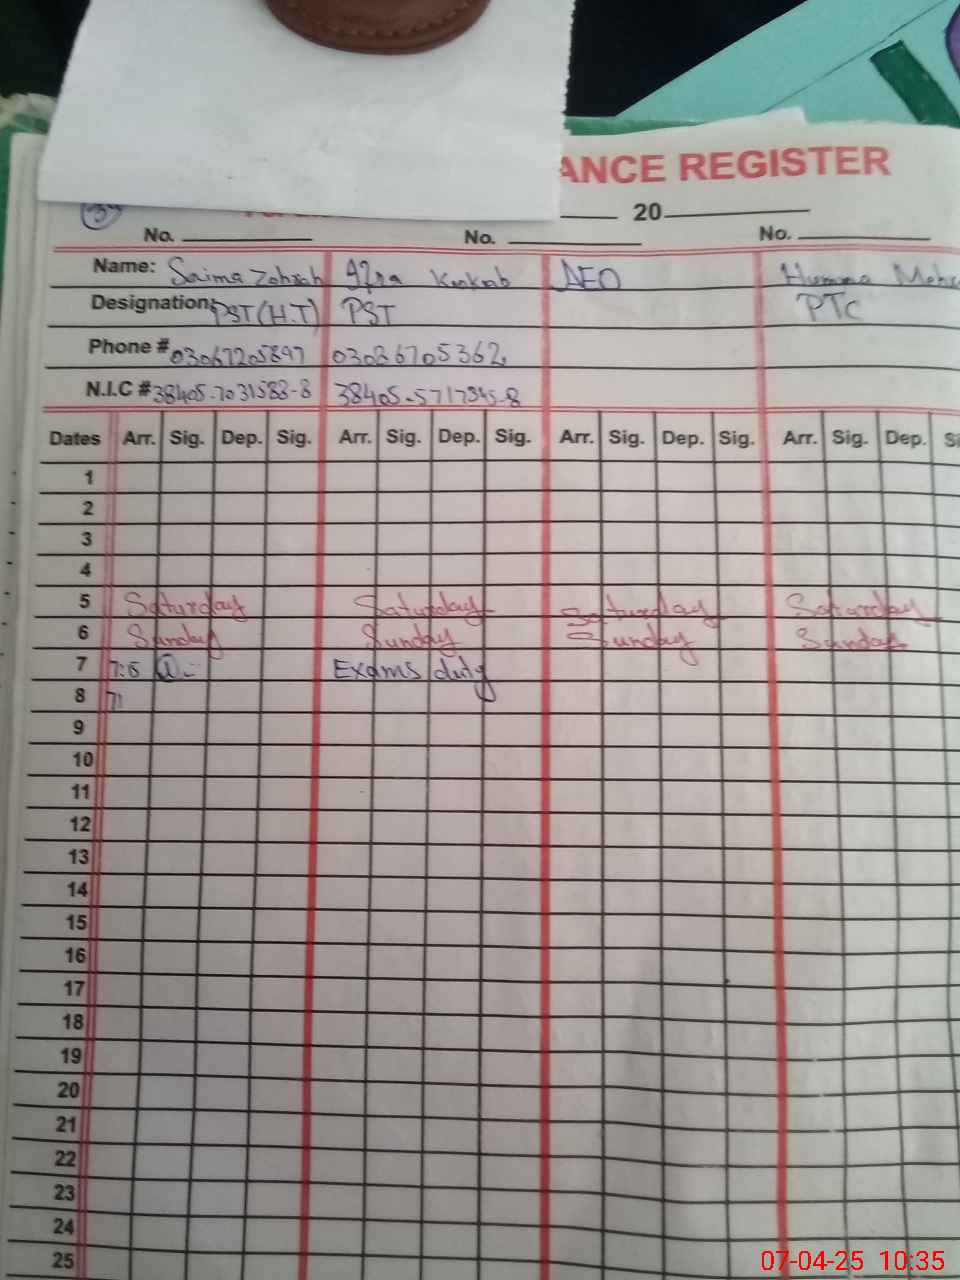 ANCE REGISTER
20
No. No. No.
Name: Saima Zohrah Iqra Kokab AEO Humma
Designation: PST (H.T) PST PTC
Phone # 03067205897 03086705362
N.I.C # 38405-7031588-8 38405-5717945-8
Dates Arr. Sig. Dep. Sig. Arr. Sig. Dep. Sig. Arr. Sig. Dep. Sig. Arr. Sig. Dep.
1
2
3
4
5 Saturday Saturday Saturday Saturday
6 Sunday Sunday Sunday Sunday
7 Exams duty
8
9
10
11
12
13
14
15
16
17
18
19
20
21
22
23
24
25
07-04-25 10:35